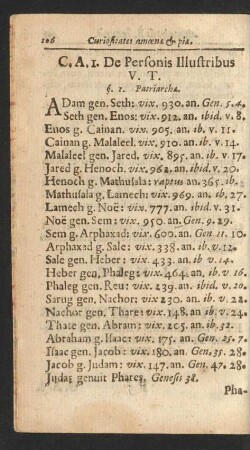 106 Curiositates amœnæ & piæ.
C. A. 1. De Personis Illustribus
V. T.
§. 1. Patriarchæ.
ADam gen. Seth: vix. 930. an. Gen. 5. 4.
Seth gen. Enos: vix. 912. an. ibid. v. 8.
Enos g. Cainan. vix. 905. an. ib. v. 11.
Cainan g. Malaleel. vix. 910. an. ib. v. 14.
Malaleel gen. Jared. vix. 895. an. ib. v. 17.
Jared g. Henoch. vix. 962. an. ibid. v. 20.
Henoch g. Mathusala: raptus an. 365. ib.
Mathusala g. Lamech: vix 969. an. ib. 27.
Lamech g. Noë: vix. 777. an. ibid. v. 31.
Noë gen. Sem: vix. 950. an. Gen. 9. 29.
Sem g. Arphaxad: vix. 600. an. Gen 11. 10.
Arphaxad g. Sale: vix. 338. an. ib. v. 12.
Sale gen. Heber: vix. 433. an. ib v. 14.
Heber gen, Phaleg: vix. 464. an. ib v. 16.
Phaleg gen. Reu: vix. 239. an. ibid. v. 20.
Sarug gen, Nachor: vix 230. an. ib v. 22.
Nachor gen. Thare: vix 148. an. ib v. 24.
Thare gen. Abram: vix. 205. an. ib. 32.
Abraham g. Isaac: vix. 175. an. Gen. 25. 7.
Isaac gen. Jacob: vix. 180. an. Gen. 35. 28.
Jacob g. Judam: vix. 147. an. Gen. 47. 28.
Judas genuit Phares, Genesis 38.
Pha-